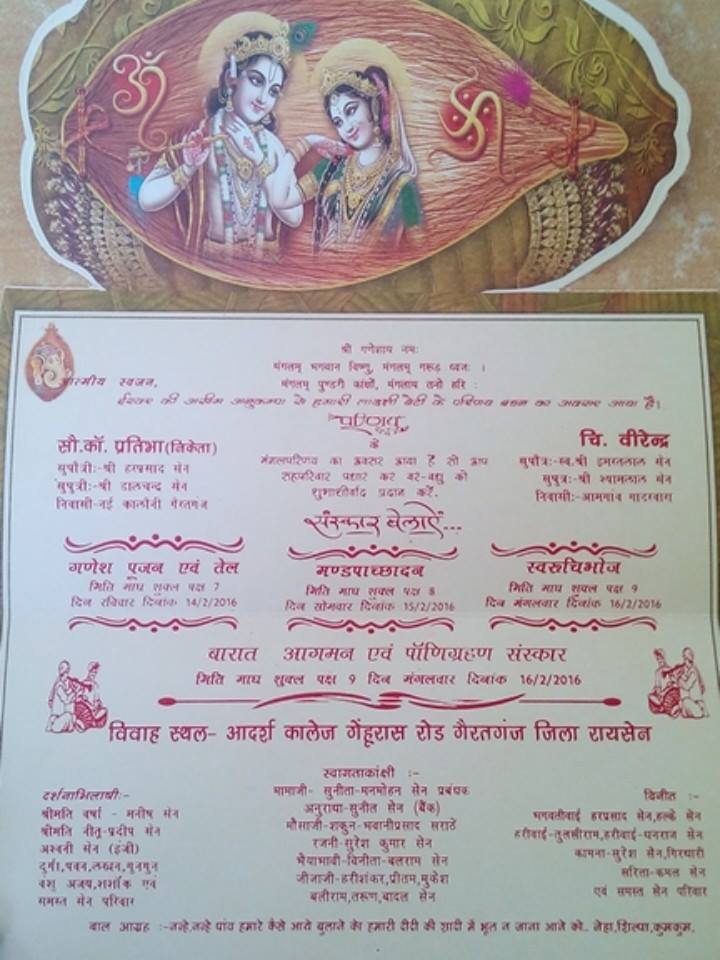 ॐ
श्री गणेशाय नमः
मंगलम् भगवान विष्णु, मंगलम् गरूड़ ध्वजः ।
मंगलम् पुण्डरी कांक्षो, मंगलाय तनो हरि :
आत्मीय स्वजन,
ईश्वर की असीम अनुकम्पा से हमारी लाडली बेटी के परिणय बंधन का अवसर आया है।
परिणय
सौ.कॉ. प्रतिभा(निकेता)
सुपौत्रीः-श्री हरप्रसाद सेन
सुपुत्रीः-श्री डालचन्द सेन
निवासी-नई कालोनी गैरतगंज
के
मंगलपरिणय का अवसर आया है सो आप
सहपरिवार पधार कर वर-वधु को
शुभार्शीवाद प्रदान करें.
चि. वीरेन्द्र
सुपौत्रः-स्व.श्री हमरतलाल सेन
सुपुत्रः-श्री श्यामलाल सेन
निवासीः-आमगांव गाडरवारा
संस्कार बेलाऐं...
गणेश पूजन एवं तेल
मिति माघ शुक्ल पक्ष 7
दिन रविवार दिनांक 14/2/2016
मण्डपाच्छादन
मिति माघ शुक्ल पक्ष 8
दिन सोमवार दिनांक 15/2/2016
स्वरुचिभोज
मिति माघ शुक्ल पक्ष 9
दिन मंगलवार दिनांक 16/2/2016
बारात आगमन एवं पॉणिग्रहण संस्कार
मिति माघ शुक्ल पक्ष 9 दिन मंगलवार दिनांक 16/2/2016
विवाह स्थल- आदर्श कालेज गेंहूरास रोड गैरतगंज जिला रायसेन
दर्शनाभिलाषीः-
श्रीमति वर्षा - मनीष सेन
श्रीमति नीतू-प्रदीप सेन
अश्वनी सेन (इंजी)
दुर्गा,पवन,लखन,गुनगुन
वंशु अजय,शशांक एवं
समस्त सेन परिवार
स्वागताकांक्षी :-
मामाजी- सुनीता-मनमोहन सेन प्रबंधक
अनुराधा-सुनील सेन (बैंक)
मौसाजी-शकुन-भवानीप्रसाद सराठे
रजनी-सुरेश कुमार सेन
भैयाभाबी-विनीता-बलराम सेन
जीजाजी-हरीशंकर,प्रीतम,मुकेश
बलीराम,तरूण,बादल सेन
विनीत :-
भगवतीबाई हरप्रसाद सेन,हल्के सेन
हरीबाई-तुलसीराम,हरीबाई-धनराज सेन
कामना-सुरेश सेन,गिरधारी
सरिता-कमल सेन
एवं समस्त सेन परिवार
बाल आग्रह :-नन्हे,नन्हे पांव हमारे कैसे आये बुलाने को हमारी दीदी की शादी में भूल न जाना आने को.. नेहा,शिल्पा,कुमकुम,